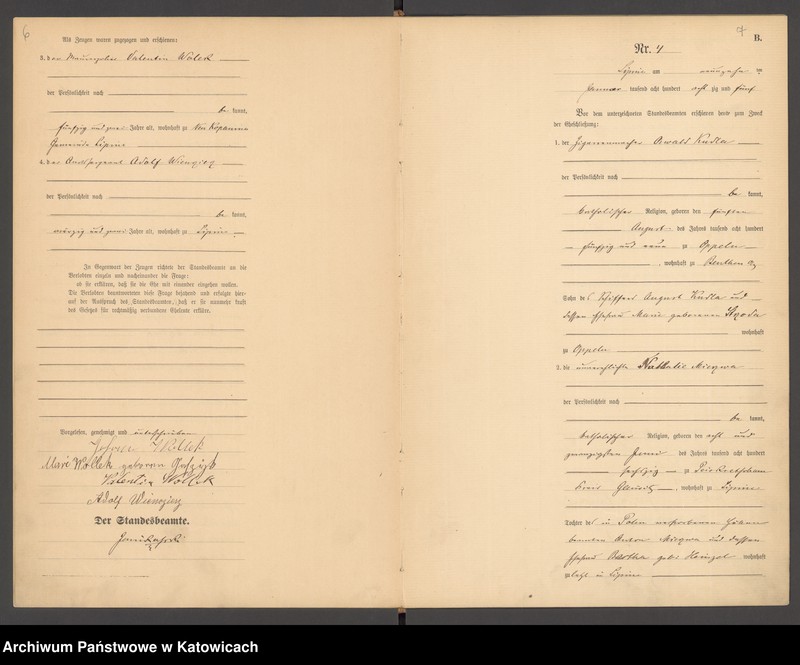 6
Als Zeugen waren zugezogen und erschienen:
3. der Maurerpolier Valentin Wolek
der Persönlichkeit nach
be kannt,
fünfzig und zwei Jahre alt, wohnhaft zu Neu Kopanina
Gemeinde Lipine
4. der Adolf Wienzierz
der Persönlichkeit nach
be kannt,
und zwei Jahre alt, wohnhaft zu Lipine
In Gegenwart der Zeugen richteten der Standesbeamte an die
Verlobten einzeln und nacheinander die Frage:
ob sie erklären, daß sie die Ehe mit einander eingehen wollen.
Die Verlobten beantworteten diese Frage bejahend und erfolgte hier-
auf der Ausspruch des Standesbeamten, daß er sie nunmehr kraft
des Gesetzes für rechtmäßig verbundene Eheleute erkläre.
Vorgelesen, genehmigt und unterschrieben
Wollek
Marie Wollek geborene
Valentin Wollek
Adolf Wienzierz
Der Standesbeamte.
7
B.
Nr. 4
Lipine am neunzehn ten
Januar tausend acht hundert acht zig und fünf
Vor dem unterzeichneten Standesbeamten erschienen heute zum Zweck
der Eheschließung:
1. der Zigarrenmacher Oswald Kudla
der Persönlichkeit nach
be kannt,
katholischer Religion, geboren den fünften
August des Jahres tausend acht hundert
fünfzig und neun zu Oppeln
, wohnhaft zu Beuthen
Sohn des Schiffers August Kudla und
dessen Ehefrau Marie geborenen Skroda
wohnhaft
zu Oppeln
2. die unverehelichte Nathalie Mierzwa
der Persönlichkeit nach
be kannt,
katholischer Religion, geboren den acht und
zwanzigsten Juni des Jahres tausend acht hundert
sechszig zu Peiskretscham
Kreis Gleiwitz, wohnhaft zu Lipine
Tochter des in Polen verstorbenen
beamten Anton Mierzwa und dessen
Ehefrau Bertha geb. Heinzel wohnhaft
zuletzt in Lipine
Archiwum Państwowe w Katowicach